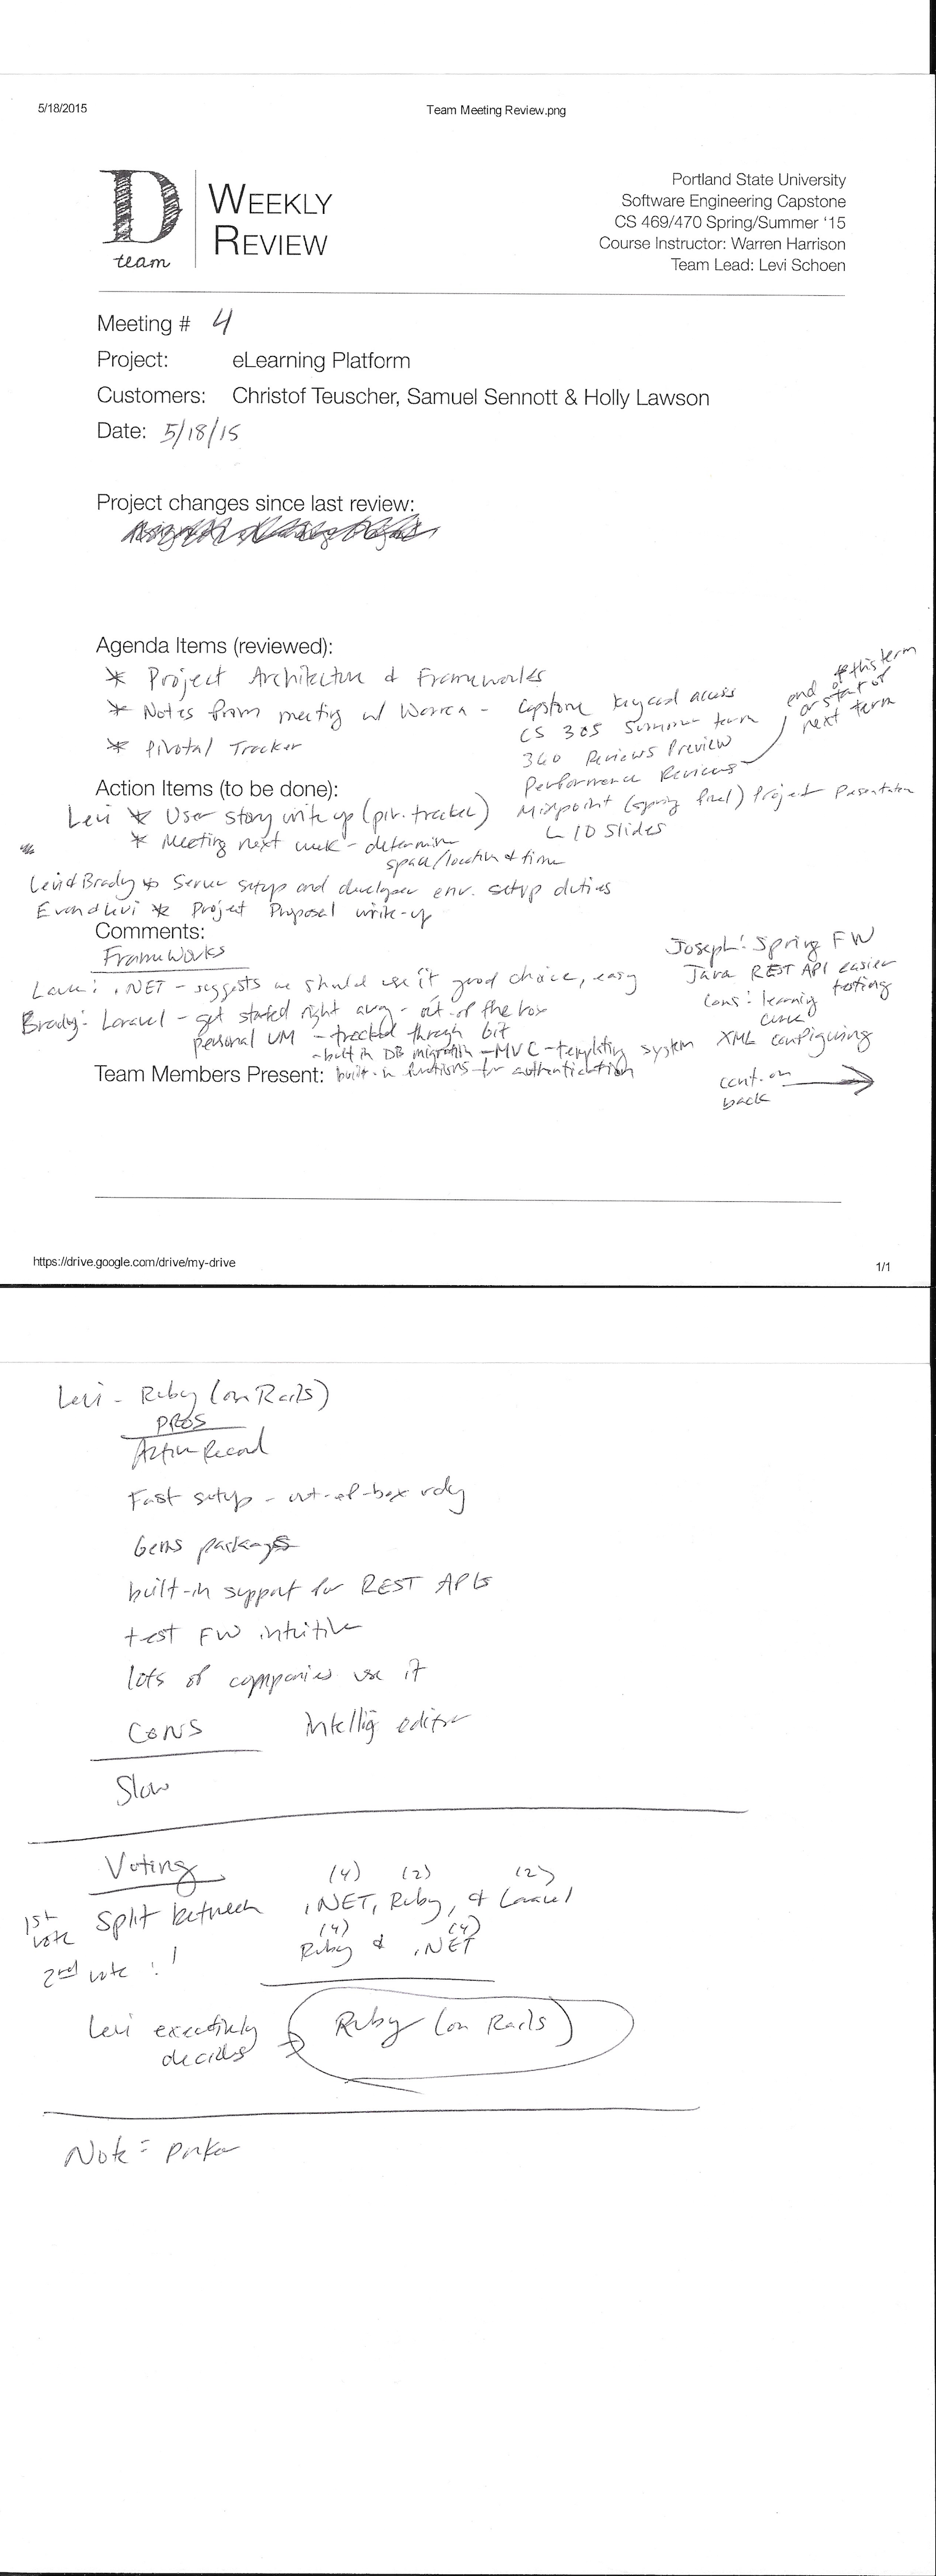 5/18/2015
Team Meeting Review.png
D
team
WEEKLY
REVIEW
Portland State University
Software Engineering Capstone
CS 469/470 Spring/Summer '15
Course Instructor: Warren Harrison
Team Lead: Levi Schoen
Meeting # 4
Project: eLearning Platform
Customers: Christof Teuscher, Samuel Sennott & Holly Lawson
Date: 5/18/15
Project changes since last review:
Agenda Items (reviewed):
* Project Architecture & Frameworks
* Notes from meeting w/ Warren - Capstone keycard access
CS 305 Summer term
360 Reviews Preview
Performance Reviews
end of this term
or start of
next term
* Pivotal Tracker
Midpoint (spring final) Project Presentation
10 slides
Action Items (to be done):
Levi * User story write up (piv. tracker)
* Meeting next week - determine
space/location & time
Levi & Brady * Server setup and developer env. setup duties
Evan & Levi * Project Proposal write-up
Comments:
Frameworks
.NET - suggests we should use it good choice, easy
Brady: Laravel - get started right away - out of the box
personal VM - tracked through
- built in DB migration - MVC - templating system
built-in functions for authentication
Joseph: Spring FW
Java REST API easier
testing
cons: learning
curve
XML configuring
cont. on
back
Team Members Present:
https://drive.google.com/drive/my-drive
1/1
Levi - Ruby (on Rails)
PROS
Active Record
Fast setup - out-of-box rdy
Gems packages
built-in support for REST APIs
test FW intuitive
lots of companies use it
CONS
editor
Slow
Voting
(4) (2) (2)
1st vote Split between .NET, Ruby, & Laravel
(4) (4)
2nd vote: Ruby & .NET
Levi executively
decides
Ruby (on Rails)
Note: